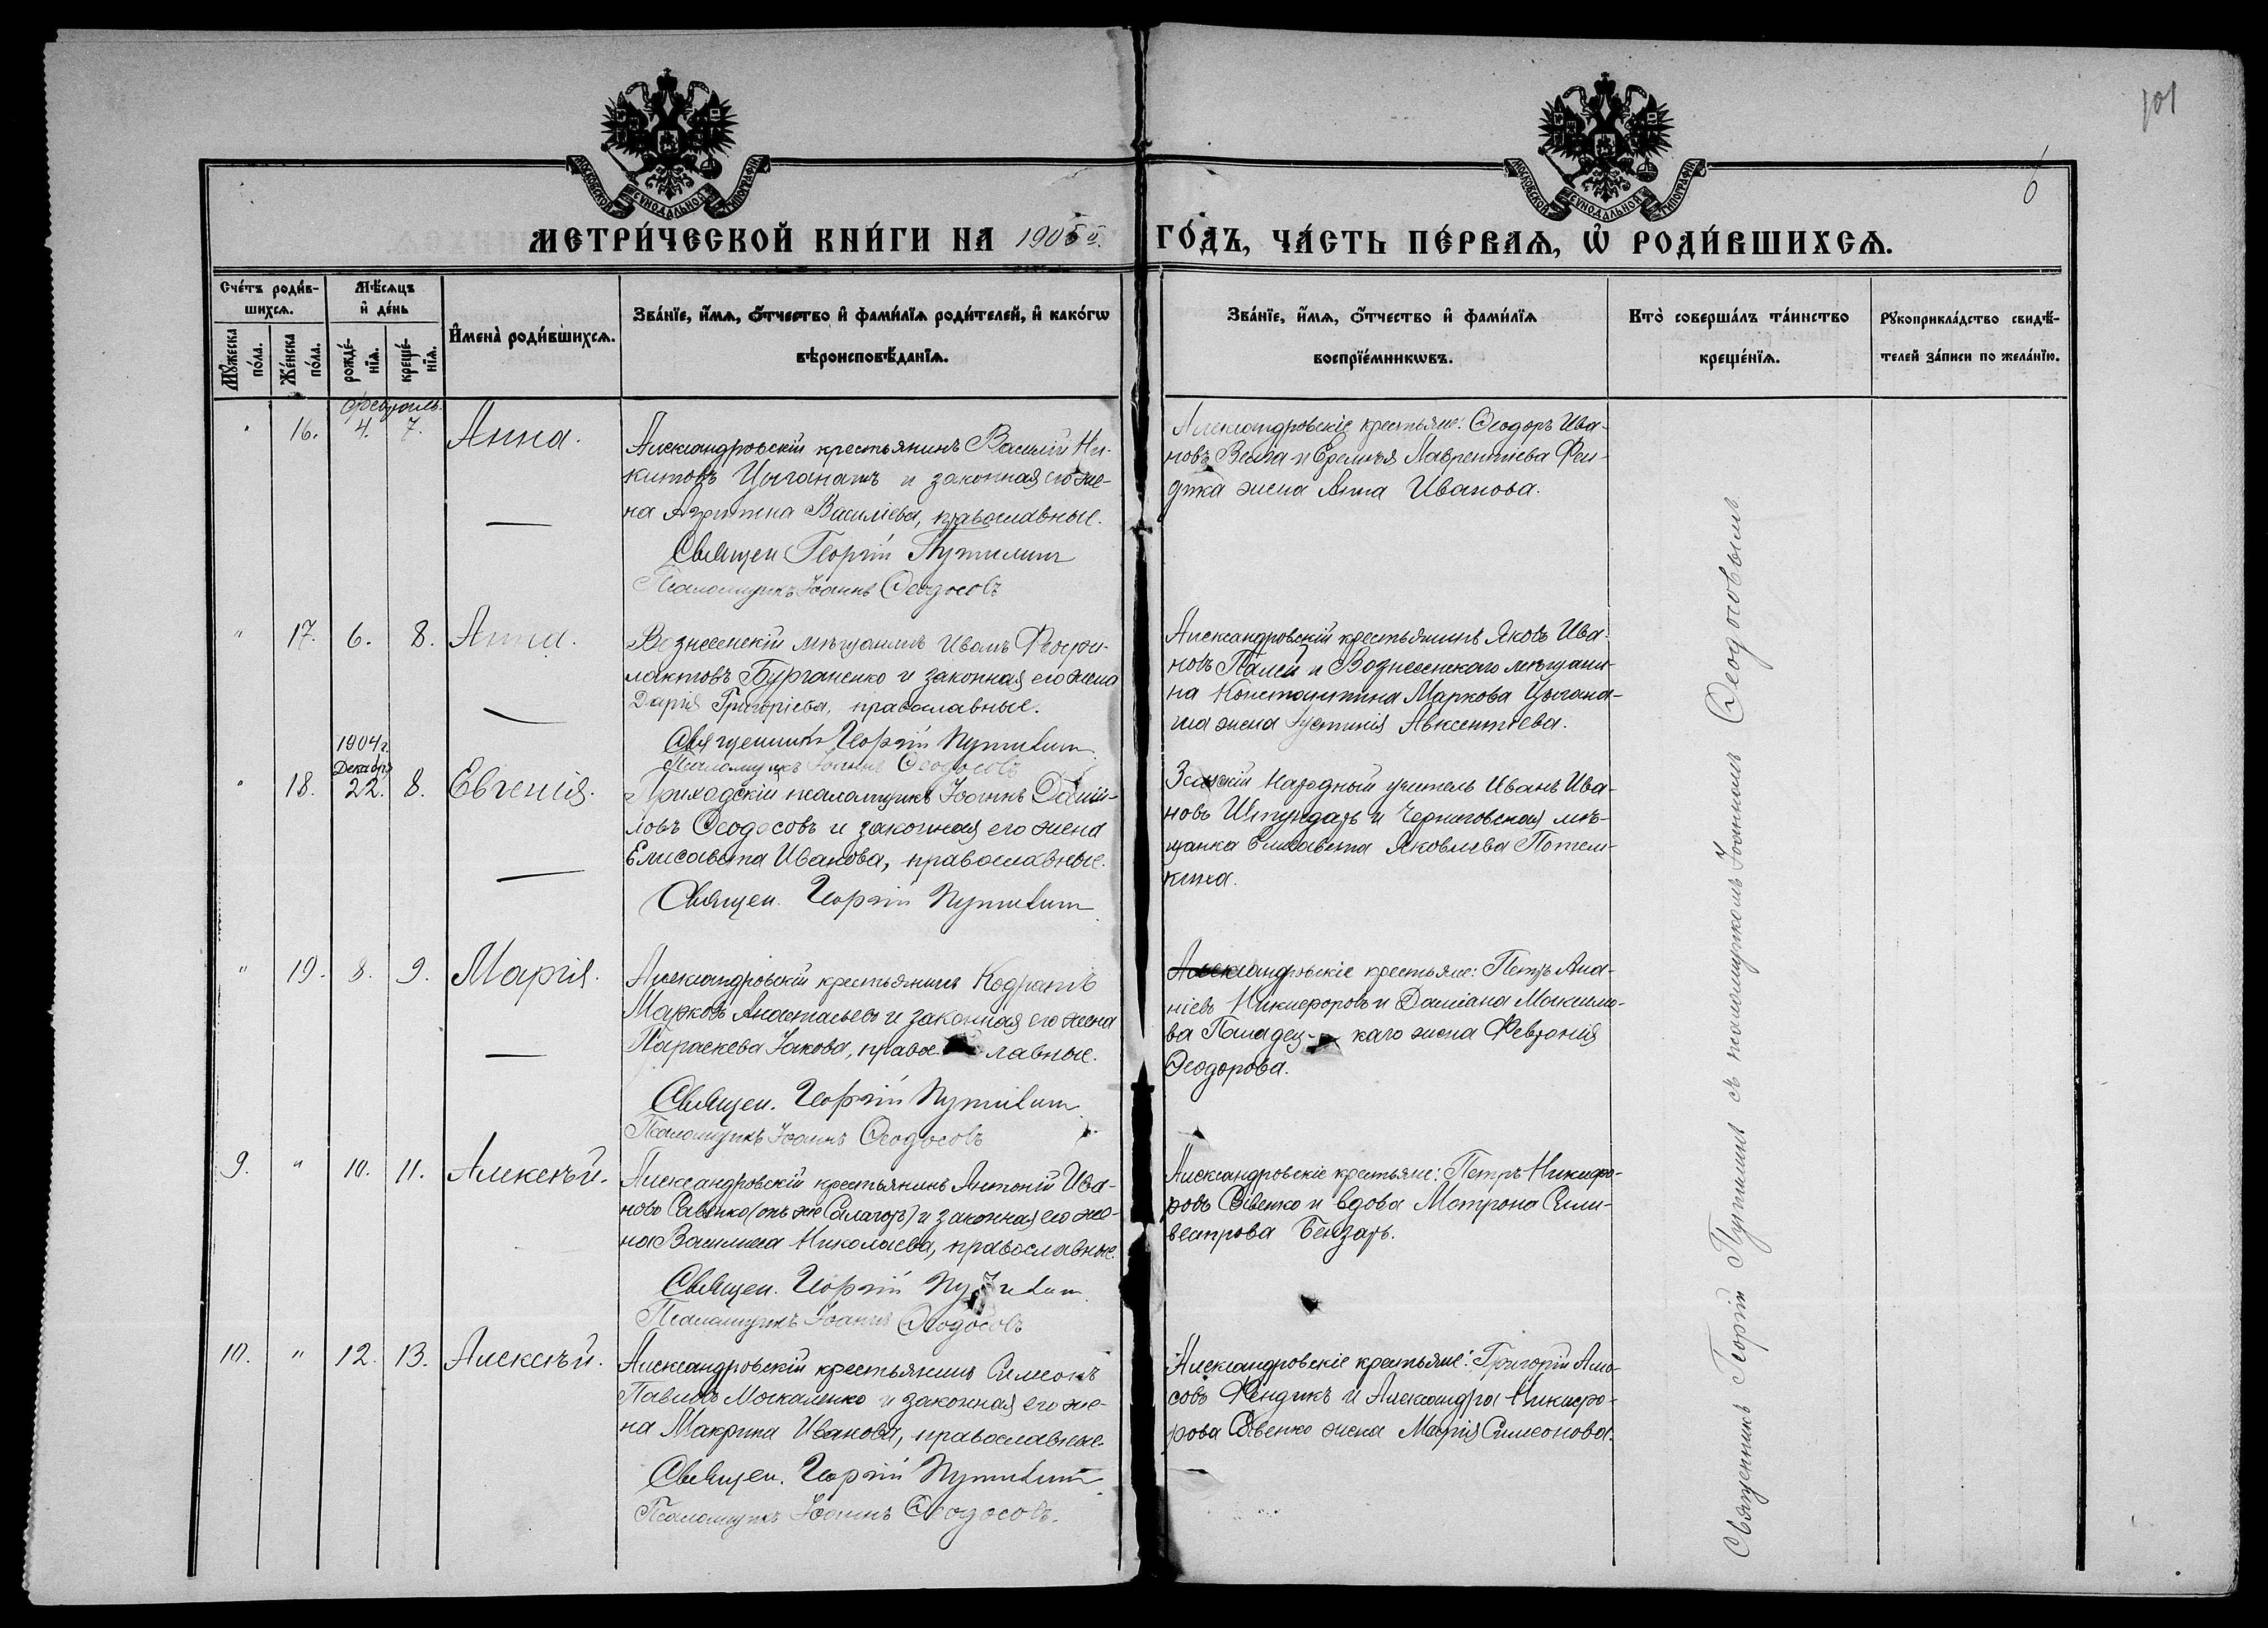 101
6
МОСКОВСКОЙ СѴНОДАЛЬНОЙ ТИПОГРАФІИ
МОСКОВСКОЙ СѴНОДАЛЬНОЙ ТИПОГРАФІИ
МЕТРИ́ЧЕСКОЙ КНИ́ГИ НА 1905й. ГО́ДЪ, ЧА́СТЬ ПЕ́РВАѦ, Ѡ҆ РОДИ́ВШИХСѦ.
Сче́тъ роди́в-
шихсѧ.
Мѣ́сѧцъ
и҆ де́нь
Мꙋ́жеска
по́ла.
Же́нска
по́ла.
рожде́-
нїѧ.
креще́-
нїѧ.
И҆мена̀ роди́вшихсѧ.
Зва́нїе, и҆́мѧ, ѻ҆́тчество и҆ фами́лїѧ роди́телей, и҆ како́гѡ
вѣроисповѣ́данїѧ.
Зва́нїе, и҆́мѧ, ѻ҆́тчество и҆ фами́лїѧ
воспрїе́мникѡвъ.
Кто̀ соверша́лъ та́инство
креще́нїѧ.
Рꙋкоприкла́дство свидѣ́-
телей за́писи по жела́нїю.
Февраль.
" 16. 4. 7. Анна.
Александровскій крестьянинъ Василій Ни-
китовъ Цыганашъ и законная его же-
на Агрипина Василіева, православные.
Священ Георгій Путилин
Псаломщикъ Іоаннъ Ѳеодосовъ
Александровскіе крестьяне: Ѳеодоръ Ива-
новъ и Еремѣя Лаврентіева Фен-
дика жена Анна Иванова.
" 17. 6. 8. Анна.
Вознесенскій мѣщанинъ Иванъ Ѳеофи-
лактовъ Бурганенко и законная его жена
Дарія Григоріева, православные.
Священникъ Георгій Путилин
Псаломщикъ Іоаннъ Ѳеодосовъ
Александровскій крестьянинъ Яковъ Ива-
новъ Палій и Вознесенскаго мѣщани-
на Константина Маркова Цыгана-
ша жена Іустинія Авксентіева.
1904 г.
Декабря
" 18. 22. 8. Евгенія.
Приходскій псаломщикъ Іоаннъ Даніи-
ловъ Ѳеодосовъ и законная его жена
Елисавета Иванова, православные.
Священ. Георгій Путилин
Земскій Народный учитель Иванъ Ива-
новъ Шпундарь и Черниговская мѣ-
щанка Елисавета Яковлева Потем-
кина.
" 19. 8. 9. Марія.
Александровскій крестьянинъ Кодратъ
Марковъ Анастасьевъ и законная его жена
Параскева Іакова, правос лавные.
Священ. Георгій Путилин
Псаломщикъ Іоаннъ Ѳеодосовъ
Александровскіе крестьяне: Петръ Ана-
ніевъ Никифоровъ и Даміана Максимо-
ва каго жена Феврония
Ѳеодорова.
9. " 10. 11. Алексѣй.
Александровскій крестьянинъ Антоній Ива-
новъ Савенко (онъ же Салагоръ) и законная его же-
на Василиса Николаева, православные.
Священ. Георгій Путилин
Псаломщикъ Іоаннъ Ѳеодосовъ
Александровскіе крестьяне: Петръ Никифо-
ровъ Савенко и вдова Матрона Сили-
вестрова Бензарь.
10. " 12. 13. Алексѣй.
Александровскій крестьянинъ Симеонъ
Павловъ Москаленко и законная его же-
на Макрина Иванова, православные.
Священ. Георгій Путилин
Псаломщикъ Іоаннъ Ѳеодосовъ.
Александровскіе крестьяне: Григорій Амо-
совъ Фендикъ и Александра Никифо-
рова Савенко жена Марія Симеонова.
Священникъ Георгій Путилинъ съ псаломщикомъ Іоанномъ Ѳеодосовымъ